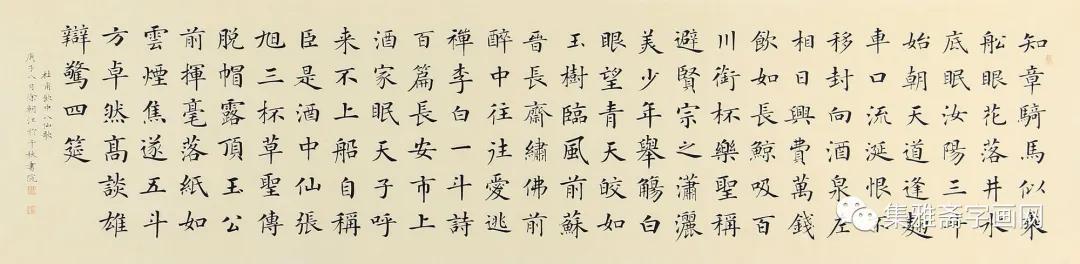 知章騎馬似乘
舩眼花落井水
底眠汝陽三斗
始朝天道逢麹
車口流涎恨不
移封向酒泉左
相日興費萬錢
飲如長鯨吸百
川銜杯樂聖稱
避賢宗之瀟灑
美少年舉觴白
眼望青天皎如
玉樹臨風前蘇
晉長齋繡佛前
醉中往往愛逃
禪李白一斗詩
百篇長安市上
酒家眠天子呼
来不上船自稱
臣是酒中仙張
旭三杯草聖傳
脱帽露頂王公
前揮毫落紙如
雲煙焦遂五斗
方卓然髙談雄
辯驚四筵
杜甫飲中八仙歌
庚子八月徐朝江於千秋書院
集雅斋字画网